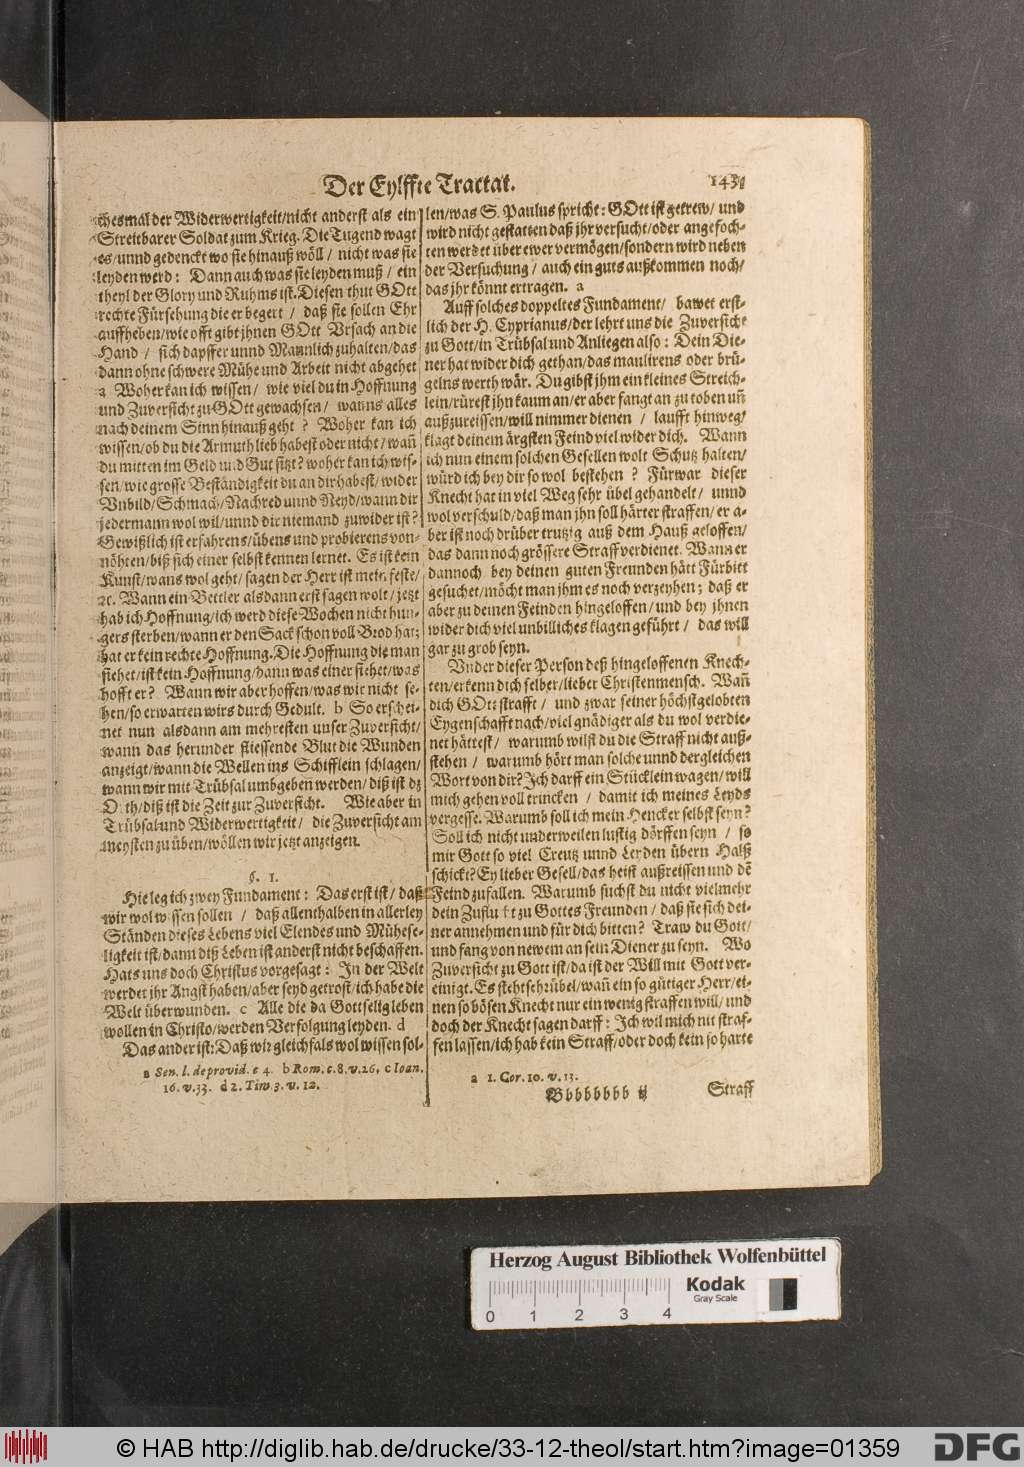 Der Eylffte Tractat.
chesmal der Widerwertigkeit/nicht anderst als ein
Streitbarer Soldat zum Krieg. Die Tugend wagt
es/unnd gedenckt wo sie hinauß wöll / nicht was sie
leyden werd: Dann auch was sie leyden muß / ein
theyl der Glory und Ruhms ist. Diesen thut GOtt
rechte Fürsehung die er begert / daß sie sollen Ehr
auffheben/wie offt gibt jhnen GOtt Ursach an die
Hand / sich dapffer unnd Mannlich zuhalten/das
dann ohne schwere Mühe und Arbeit nicht abgehet
a Woher kan ich wissen / wie viel du in Hoffnung
und Zuversicht zu GOtt gewachsen / wanns alles
nach deinem Sinn hinauß geht ? Woher kan ich
wissen/ob du die Armuth lieb habest oder nicht/wañ
du mitten im Geld und Gut sitzt? woher kan ich wis-
sen/wie grosse Beständigkeit du an dir habest/wider
Unbild/Schmach/Nachred unnd Neyd/wann dir
jedermann wol wil/unnd dir niemand zuwider ist?
Gewißlich ist erfahrens/übens und probierens von-
nöhten/biß sich einer selbst kennen lernet. Es ist kein
Kunst/wans wol geht/sagen der Herr ist mein feste/
ꝛc. Wann ein Bettler alsdann erst sagen wolt/jetzt
hab ich Hoffnung/ich werd diese Wochen nicht hun-
gers sterben/wann er den Sack schon voll Brod hat;
hat er kein rechte Hoffnung. Die Hoffnung die man
siehet/ist kein Hoffnung/dann was einer siehet/was
hofft er? Wann wir aber hoffen/was wir nicht se-
hen/so erwarten wirs durch Gedult. b So erschei-
net nun alsdann am mehresten unser Zuversicht/
wann das herunder fliessende Blut die Wunden
anzeigt/wann die Wellen ins Schifflein schlagen/
wann wir mit Trübsal umbgebeñ werden/diß ist dz
Orth/diß ist die Zeit zur Zuversicht. Wie aber in
Trübsal und Widerwertigkeit / die Zuversicht am
meysten zu üben/wöllen wir jetzt anzeigen.
§. 1.
Hie leg ich zwey Fundament: Das erst ist / daß
wir wol wissen sollen / daß allenthalben in allerley
Ständen dieses Lebens viel Elendes und Mühese-
ligkeit ist/dann diß Leben ist anderst nicht beschaffen.
Hats uns doch Christus vorgesagt: In der Welt
werdet jhr Angst haben/aber seyd getrost/ich habe die
Welt überwunden. c Alle die da Gottselig leben
wollen in Christo/werden Verfolgung leyden. d
Das ander ist: Daß wir gleichfals wol wissen sol-
a Sen. l. de provid. c 4. b Rom. c. 8. v. 26. c Ioan.
16. v. 33. d 2. Tim 3. v. 12.
len/was S. Paulus spricht: GOtt ist getrew/ und
wird nicht gestatten daß jhr versucht/oder angefoch-
ten werdet über ewer vermögen/sondern wird neben
der Versuchung / auch ein guts außkommen noch/
das jhr könnt ertragen. a
Auff solches doppeltes Fundament/ bawet erst-
lich der H. Cyprianus/der lehrt uns die Zuversicht
zu Gott/in Trübsal und Anliegen also: Dein Die-
ner hat wider dich gethan/das maulirens oder brü-
gelns werth wär. Du gibst jhm ein kleines Streich-
lein/rürest jhn kaum an/er aber fangt an zu toben uñ
außzureissen/will nimmer dienen / laufft hinweg/
klagt deinem ärgsten Feind viel wider dich. Wann
ich nun einem solchen Gesellen wolt Schutz halten/
würd ich bey dir so wol bestehen ? Fürwar dieser
Knecht hat in viel Weg sehr übel gehandelt/ unnd
wol verschuld/daß man jhn soll härter straffen/er a-
ber ist noch drüber trutzig auß dem Hauß geloffen/
das dann noch grössere Straff verdienet. Wann er
dannoch bey deinen guten Freunden hätt Fürbitt
gesuchet/möcht man jhm es noch verzeyhen; daß er
aber zu deinen Feinden hingeloffen/und bey jhnen
wider dich viel unbilliches klagen geführt / das will
gar zu grob seyn.
Under dieser Person deß hingeloffenen Knech-
ten/erkenn dich selber/lieber Christenmensch. Wañ
dich GOtt strafft / und zwar seiner höchstgelobten
Eygenschafft nach/viel gnädiger als du wol verdie-
net hättest/ warumb wilst du die Straff nicht auß-
stehen / warumb hört man solche unnd dergleichen
Wort von dir? Ich darff ein Stücklein wagen/will
mich gehen voll trincken / damit ich meines Leyds
vergesse. Warumb soll ich mein Hencker selbst seyn?
Soll ich nicht underweilen lustig dörffen seyn / so
mir Gott so viel Creutz unnd Leyden übern Halß
schickt? Ey lieber Gesell/das heist außreissen und dē
Feind zufallen. Warumb suchst du nicht vielmehr
dein Zuflucht zu Gottes Freunden / daß sie sich dei-
ner annehmen und für dich bitten? Traw du Gott/
und fang von newem an sein Diener zu seyn. Wo
Zuversicht zu Gott ist/da ist der Will mit Gott ver-
einigt. Es steht sehr übel/wañ ein so gütiger Herr/ei-
nen so bösen Knecht nur ein wenig straffen will/und
doch der Knecht sagen darff: Ich wil mich nit straf-
fen lassen/ich hab kein Straff/oder doch kein so harte
a 1. Cor. 10. v. 13.
Bbbbbbbb ij
Straff
Herzog August Bibliothek Wolfenbüttel
Kodak
Gray Scale
0 1 2 3 4
© HAB http://diglib.hab.de/drucke/33-12-theol/start.htm?image=01359
DFG